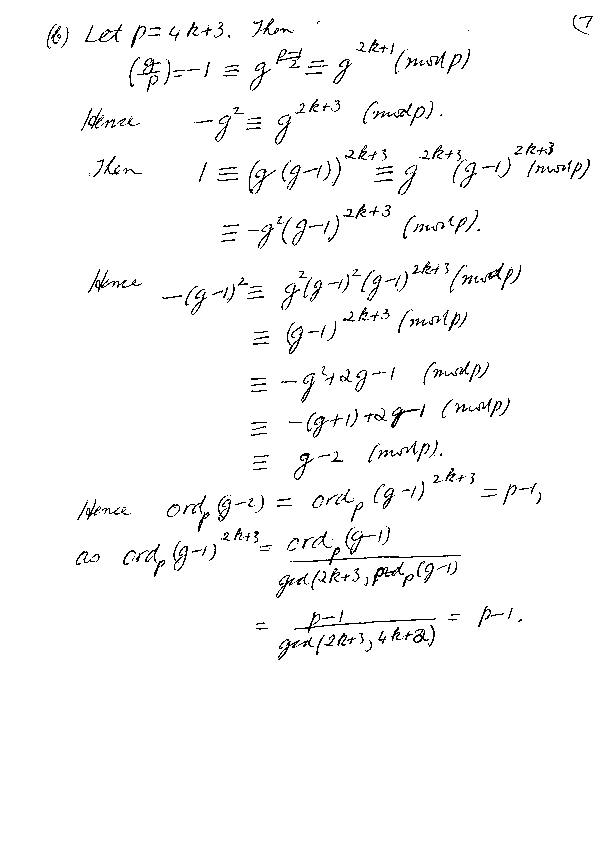 (b) Let p = 4k+3. Then (7
(g/p) = -1 ≡ g^{(p-1)/2} ≡ g^{2k+1} (mod p)
Hence -g² ≡ g^{2k+3} (mod p).
Then 1 ≡ (g(g-1))^{2k+3} ≡ g^{2k+3}(g-1)^{2k+3} (mod p)
≡ -g²(g-1)^{2k+3} (mod p).
Hence -(g-1)² ≡ g²(g-1)²(g-1)^{2k+3} (mod p)
≡ (g-1)^{2k+3} (mod p)
≡ -g²+2g-1 (mod p)
≡ -(g+1)+2g-1 (mod p)
≡ g-2 (mod p).
Hence ord_p(g-2) = ord_p(g-1)^{2k+3} = p-1,
as ord_p(g-1)^{2k+3} = ord_p(g-1)
gcd(2k+3, ord_p(g-1)
= p-1 = p-1.
gcd(2k+3, 4k+2)